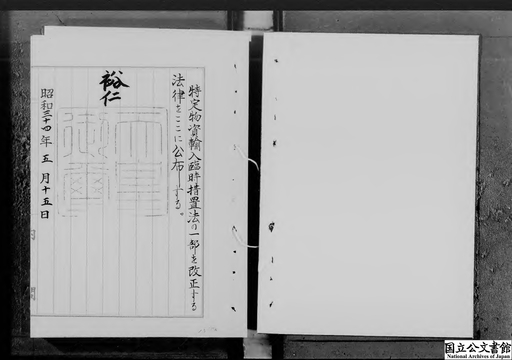 特定物資輸入臨時措置法の一部を改正する
法律をここに公布する。
裕仁
天皇
御璽
昭和三十四年五月十五日
国立公文書館
National Archives of Japan